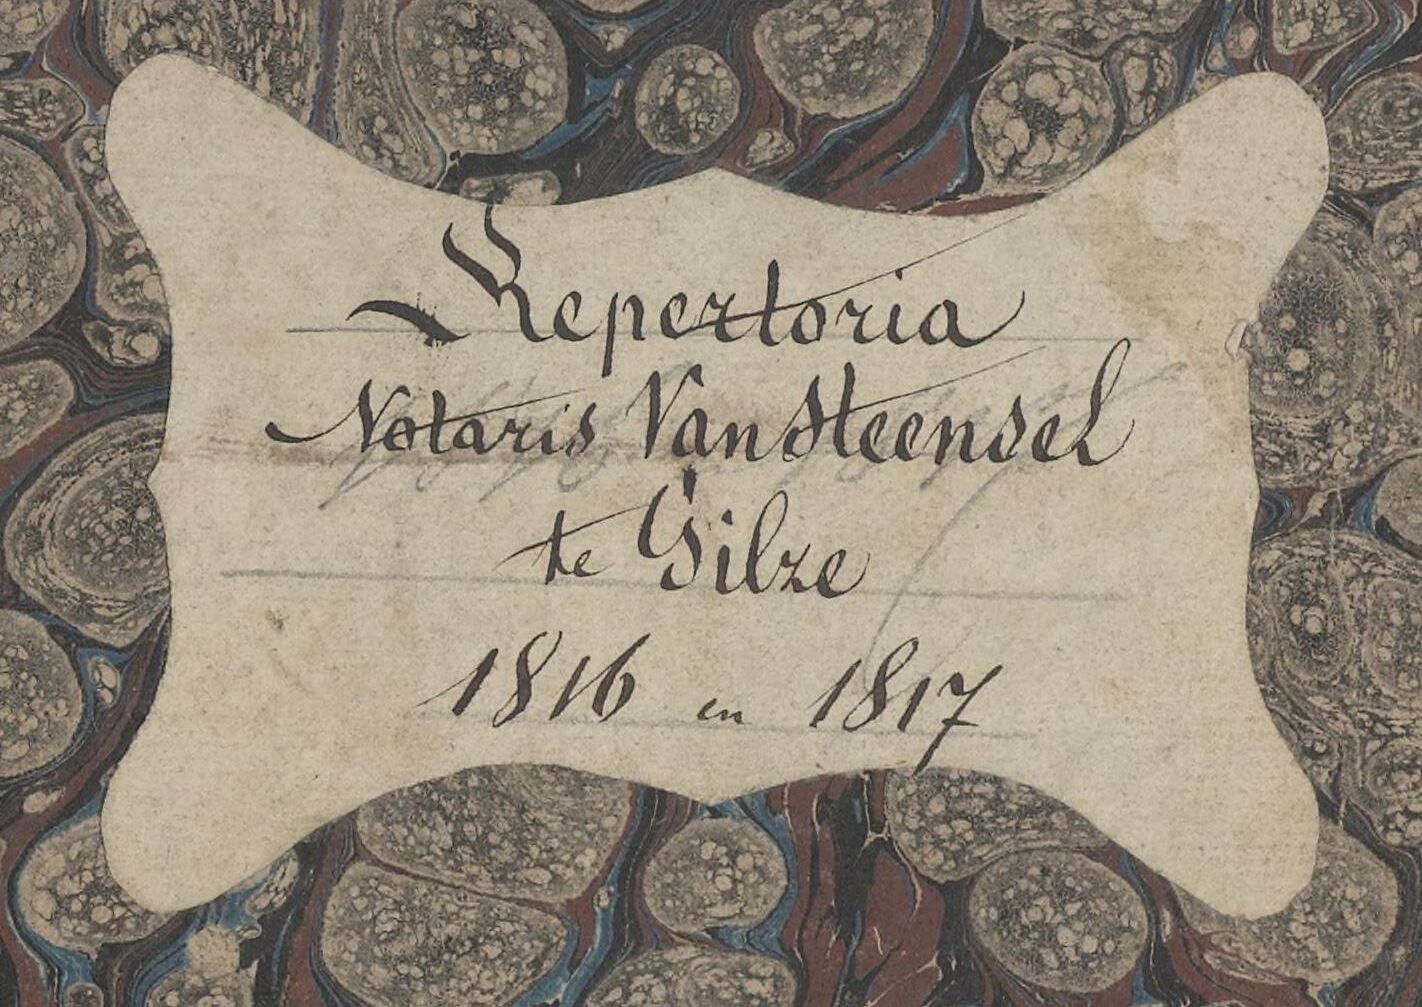 Repertoria
Notaris Van Steensel
te Gilze
1816 en 1817